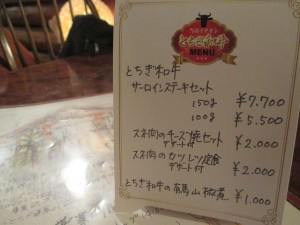 とちぎ和牛
MENU
とちぎ和牛
サーロインステーキセット
150g ¥7,700
100g ¥5,500
スネ肉のチーズ焼セット
デザート付 ¥2,000
スネ肉のカツレツ定食
デザート付 ¥2,000
とちぎ和牛の有馬山椒煮 ¥1,000